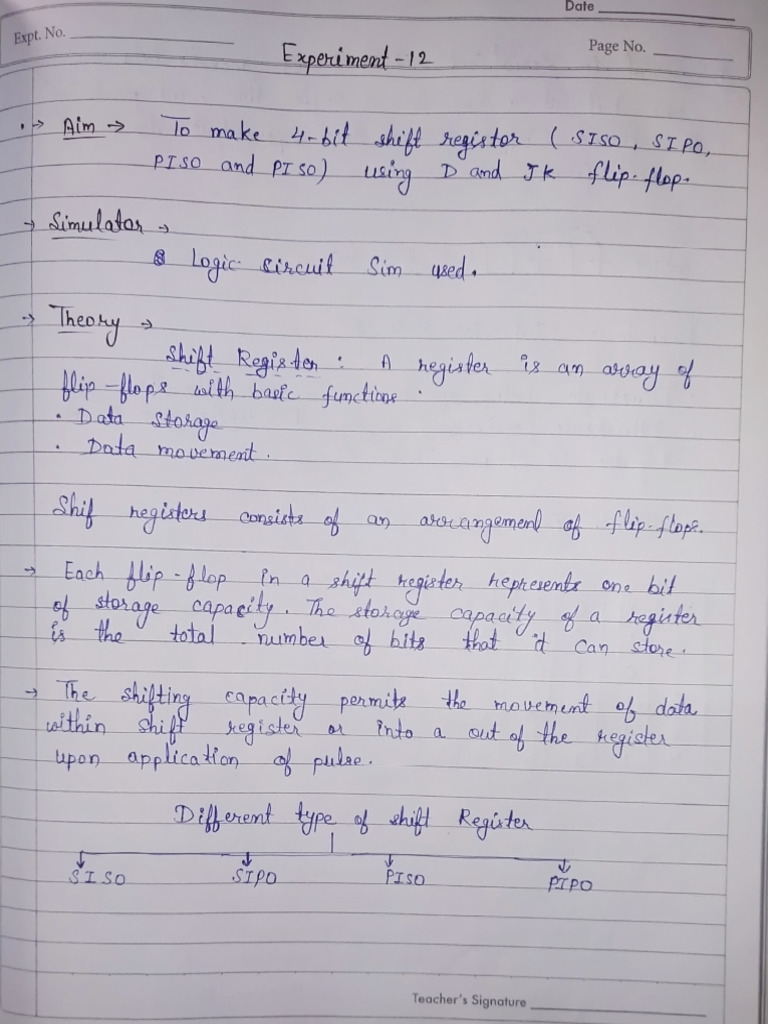 Date
Expt. No.
Page No.
Experiment - 12
.→ Aim → To make 4-bit shift registor ( SISO, SIPO,
PISO and PISO) using D and JK flip-flop.
→ Simulator →
Logic circuit Sim used.
→ Theory →
Shift Register : A register is an array of
flip-flops with basic functions.
· Data storage
· Data movement.
Shif registers consists of an arrangement of flip-flops.
→ Each flip-flop in a shift register represents one bit
of storage capacity. The storage capacity of a register
is the total number of bits that it can store.
→ The shifting capacity permits the movement of data
within shift register or into a out of the register
upon application of pulse.
Different type of shift Register
SISO SIPO PISO PIPO
Teacher's Signature